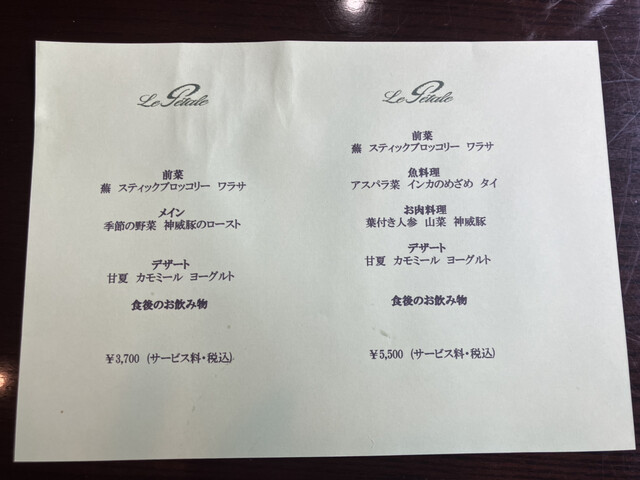 Le Pétale
前菜
蕪 スティックブロッコリー ワラサ
メイン
季節の野菜 神威豚のロースト
デザート
甘夏 カモミール ヨーグルト
食後のお飲み物
￥3,700 (サービス料・税込)
Le Pétale
前菜
蕪 スティックブロッコリー ワラサ
魚料理
アスパラ菜 インカのめざめ タイ
お肉料理
葉付き人参 山菜 神威豚
デザート
甘夏 カモミール ヨーグルト
食後のお飲み物
￥5,500 (サービス料・税込)